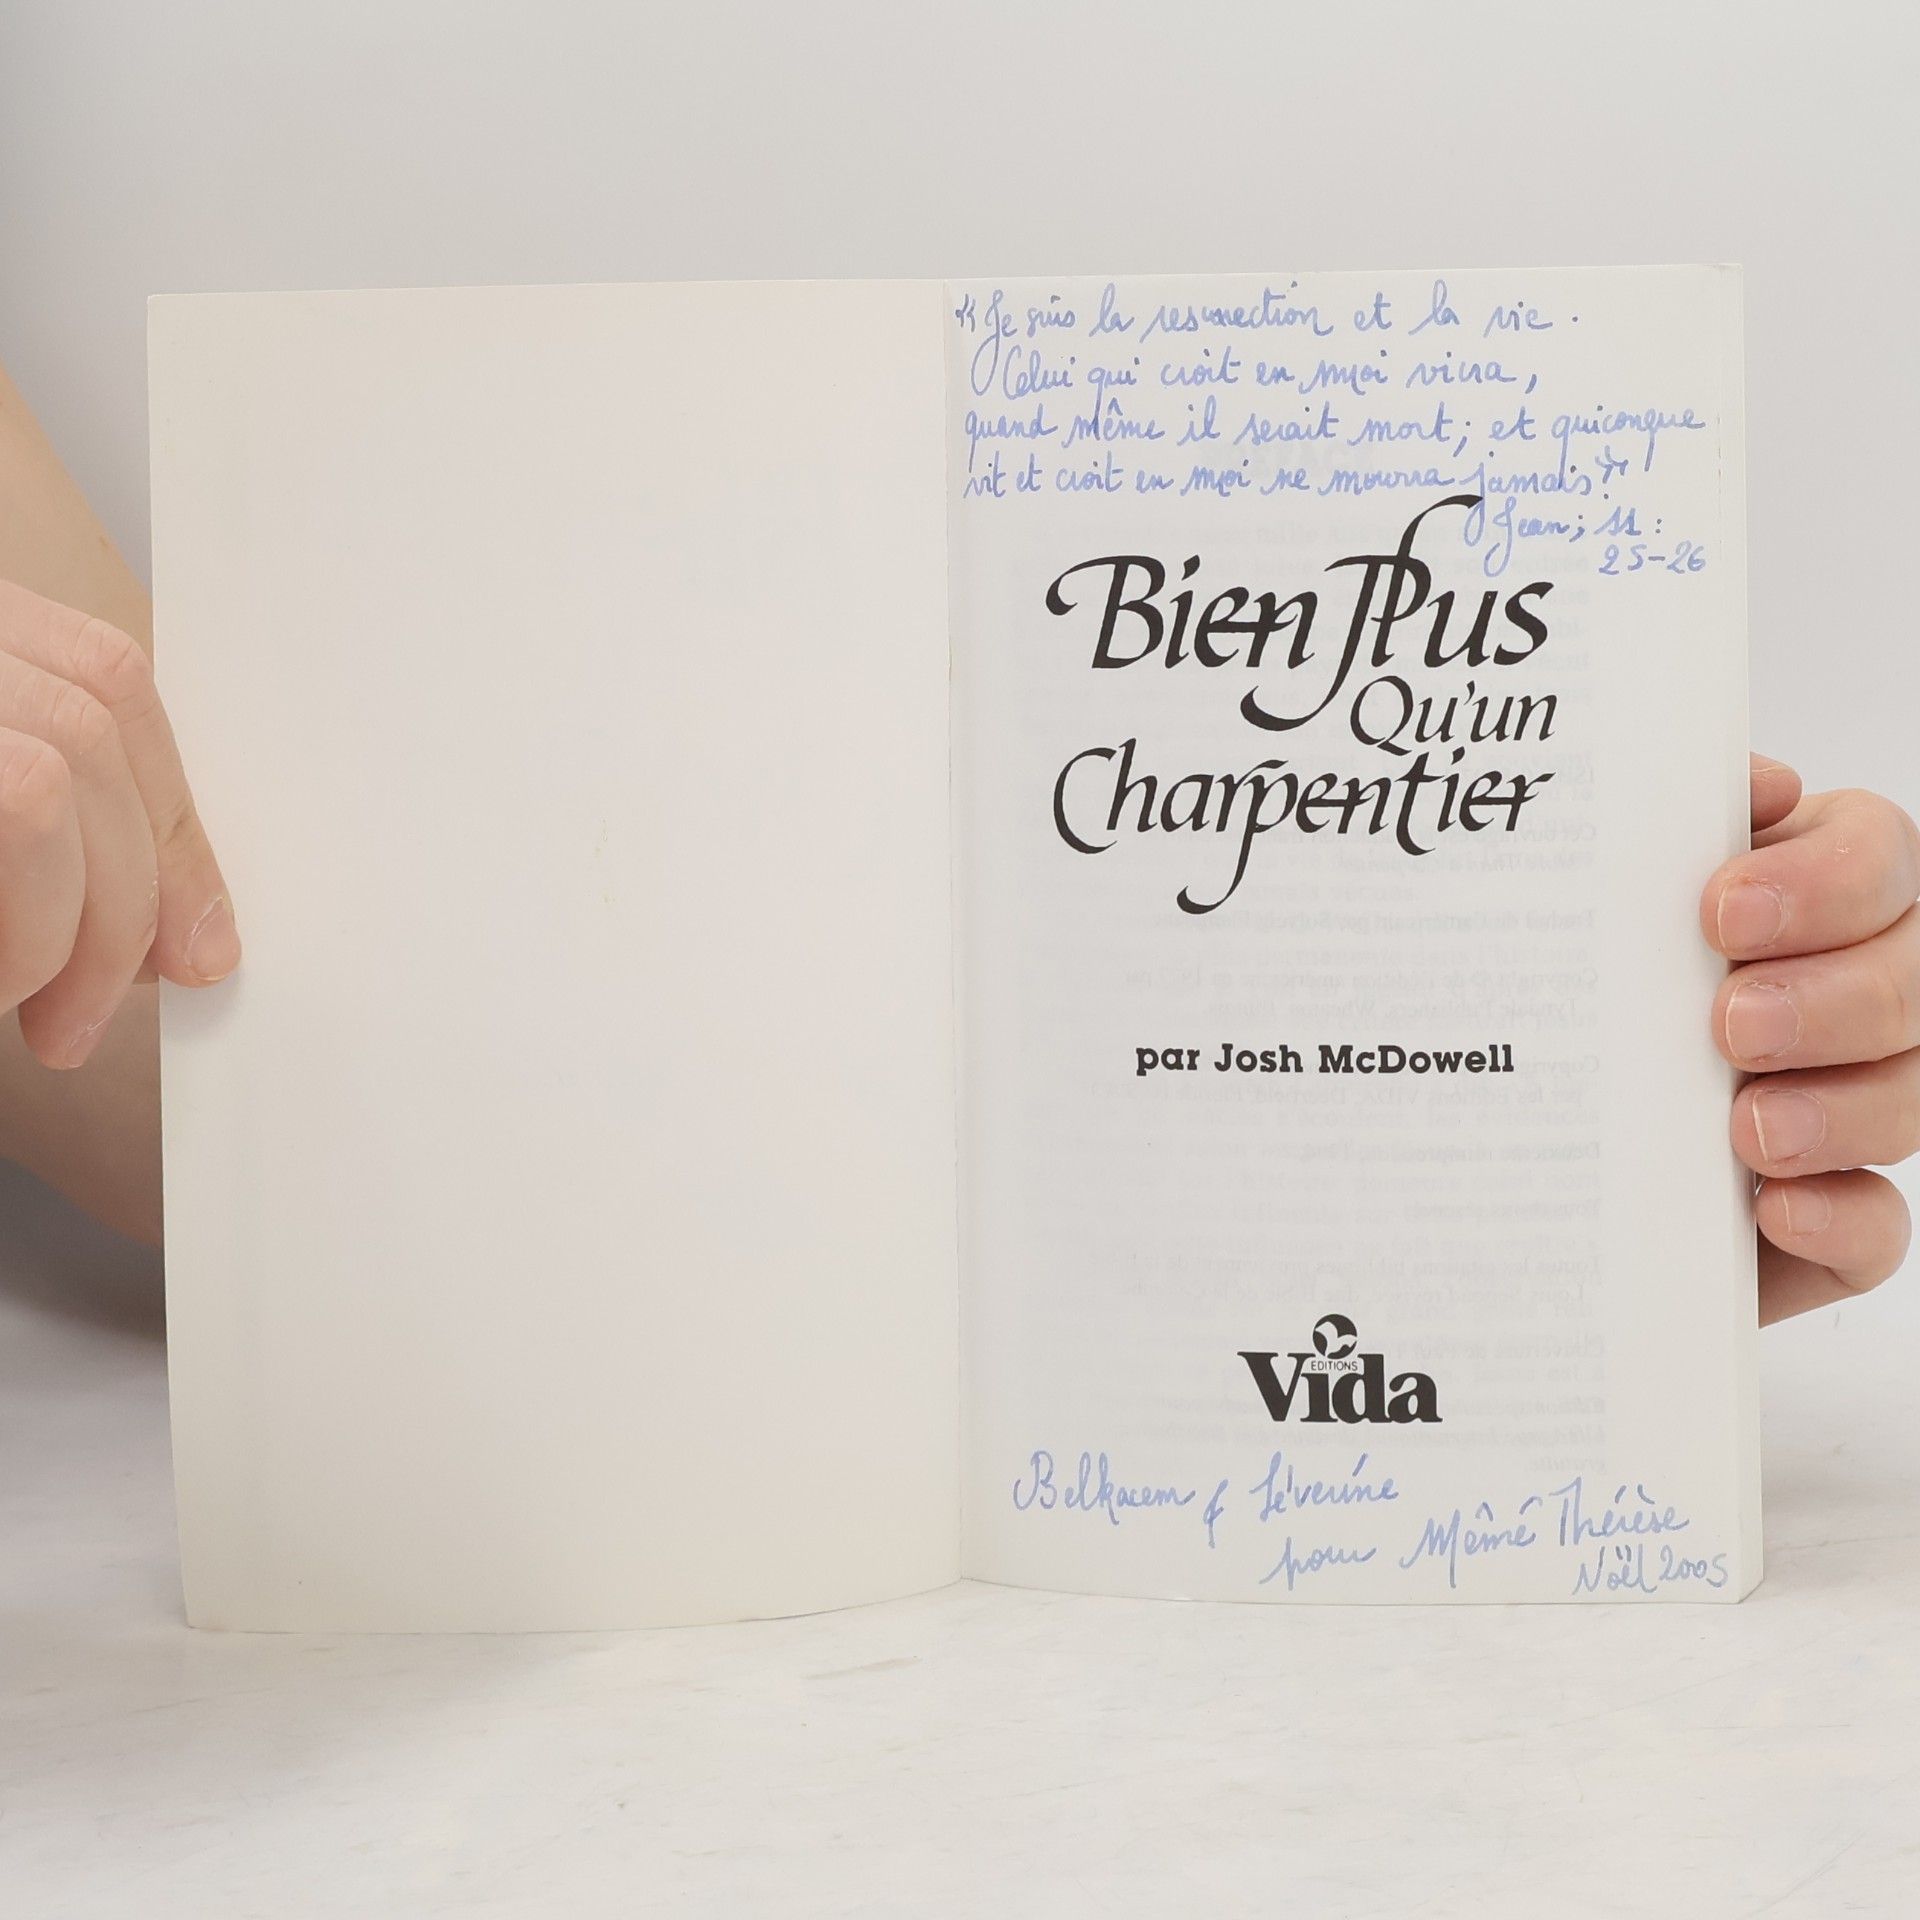 "Je suis la resurrection et la vie.
Celui qui croit en moi vivra,
quand même il serait mort; et quiconque
vit et croit en moi ne mourra jamais."
Jean; 11:
25-26
Bien Plus
Qu'un
Charpentier
par Josh McDowell
EDITIONS
Vida
Belkacem & Séverine
pour Mémé Thérèse
Noël 2005